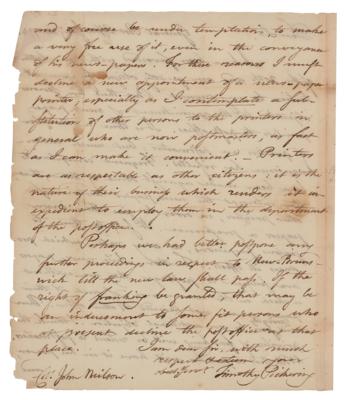 and of course be under temptation to make
a very free use of it, even in the conveyance
of his news-papers. For these reasons I must
decline a new appointment of a news-paper
printer, especially as I contemplate a sub-
stitution of other persons to the printers in
general who are now postmasters, as fast
as I can make it convenient. — Printers
are as respectable as other citizens; it is the
nature of their business which renders it in-
expedient to employ them in the department
of the post office.
Perhaps we had better postpone any
further proceedings in respect to New Bruns-
wick till the new law shall pass. If the
right of franking be granted, that may be
an inducement to some fit persons who
at present decline the post office at that
place. I am sir, with much
respect your
Timothy Pickering
Col. John Neilson.